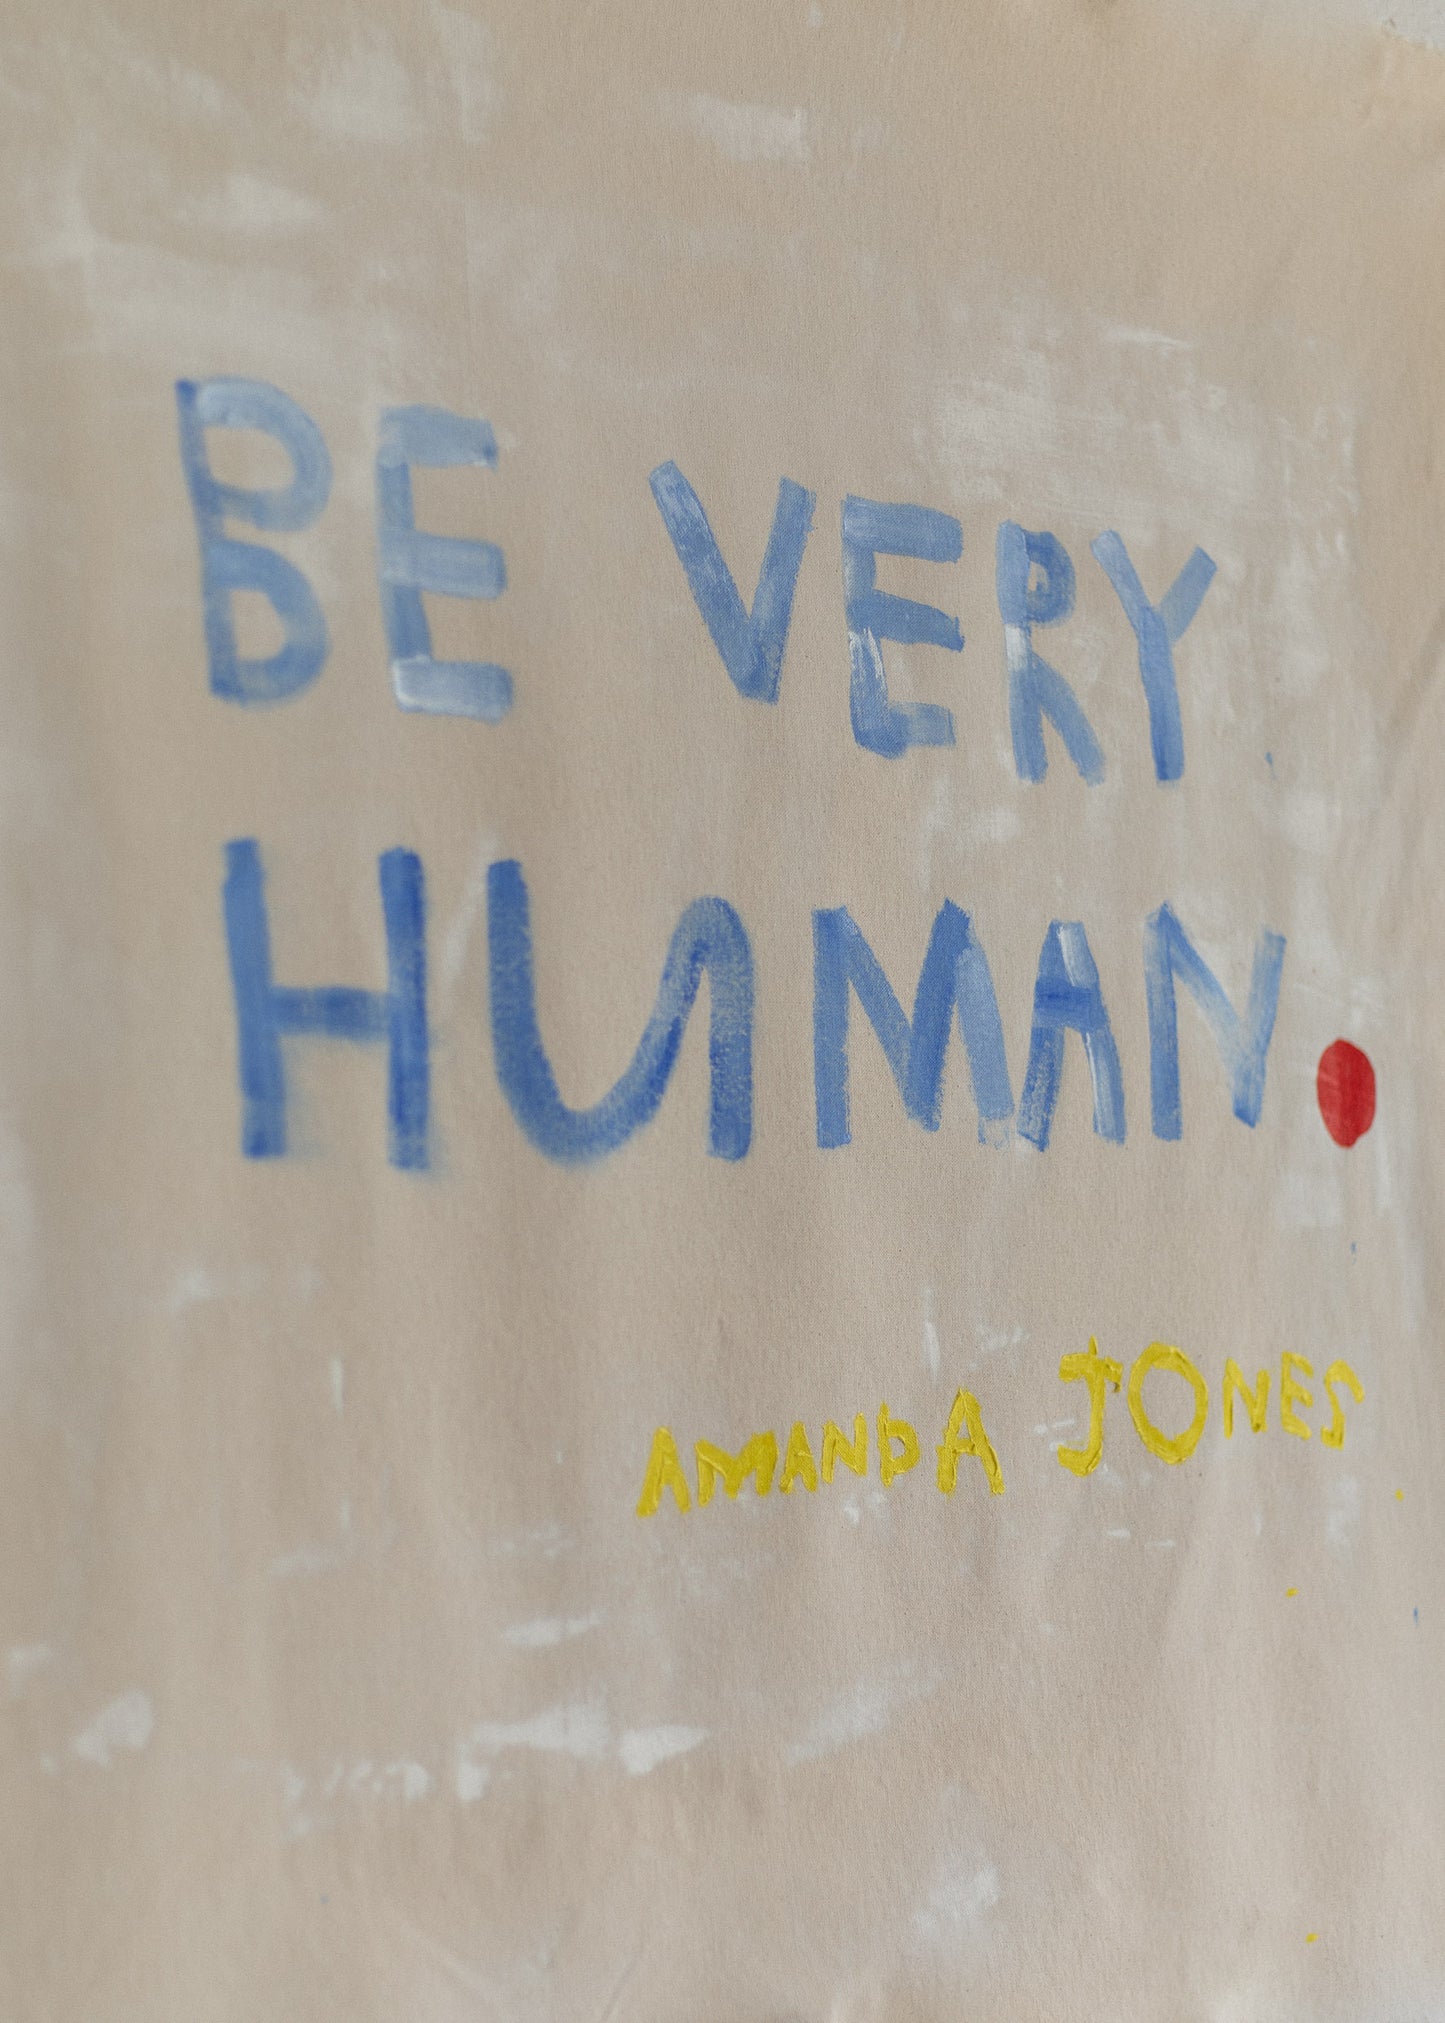 BE VERY
HUMAN.
AMANDA JONES